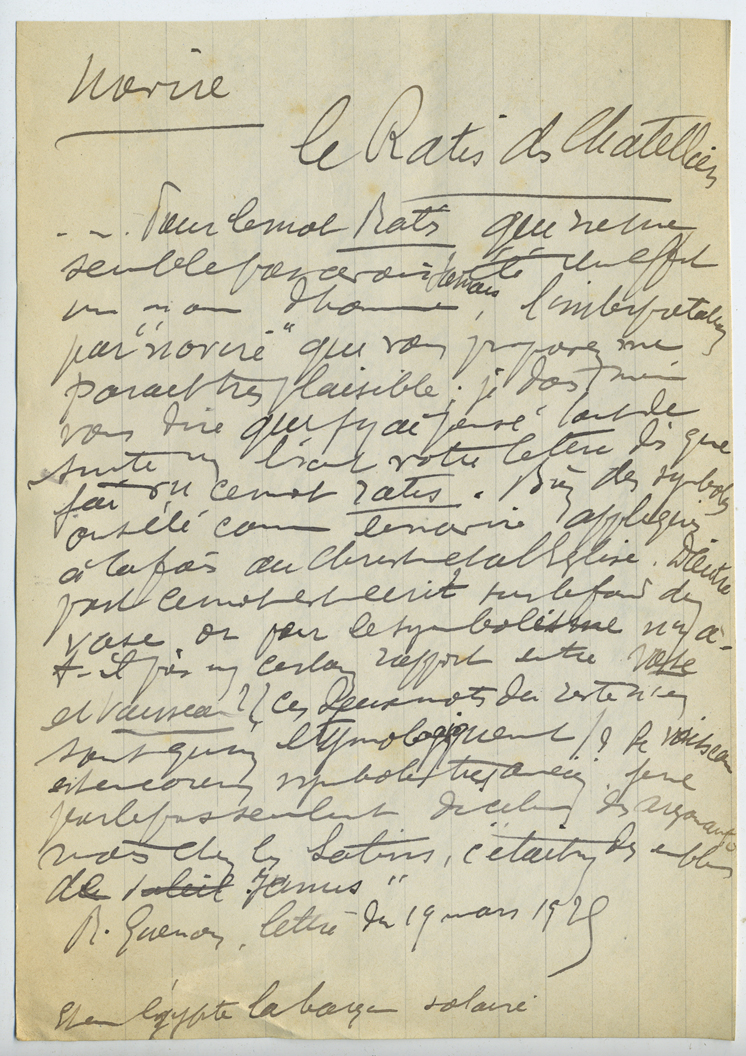 Navire
le Ratis des Chatelliers
- - . Pour le mot Ratis qui ne me
semble pas avoir jamais été en effet
un nom d'homme, l'interprétation
par "navire" que vous proposez me
parait très plausible ; je dois même
vous dire que j'y ai pensé tout de
suite en lisant votre lettre dès que
j'ai vu ce mot ratis. Bien des symboles
ont été comme le navire appliqués
à la fois au Christ et à l'Eglise. D'autre
part ce mot est écrit sur le fond du
vase or pour le symbolisme n'y a-
t-il pas un certain rapport entre vase
et vaisseau ? (ces deux mots du reste n'en
sont qu'un etymologiquement) & le vaisseau
est encore un symbole très ancien, je ne
parle pas seulement de celui des argonautes
mais chez les Latins, c'était un des emblèmes
de soleil Janus"
R. Guenon, lettre du 19 mars 1925
Et en Égypte la barque solaire